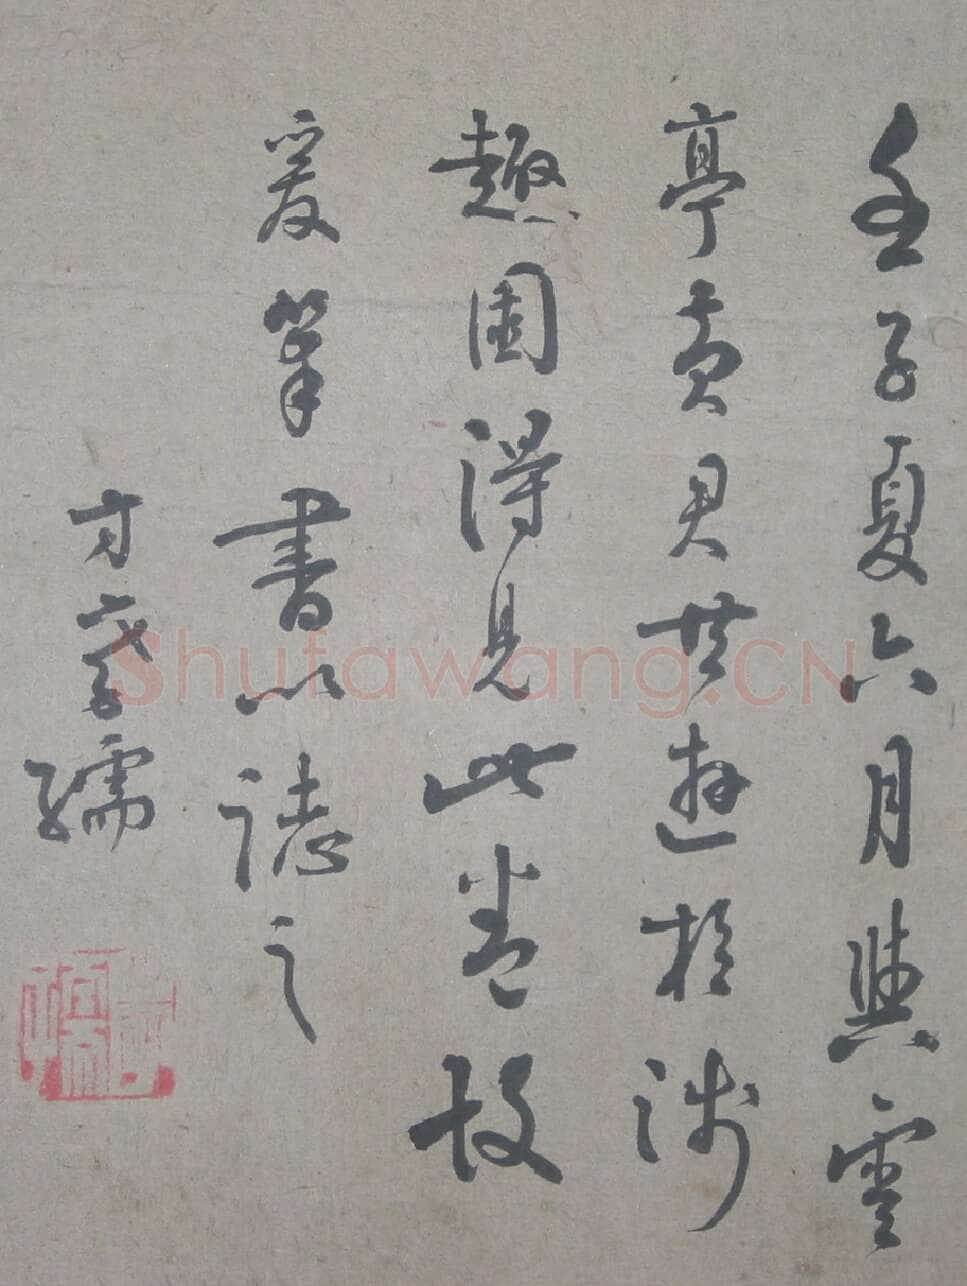 壬子夏六月與雲
亭黄君共遊於涉
趣園得見此卷故
爰筆書以誌之
方孝孺
Shufawang.CN